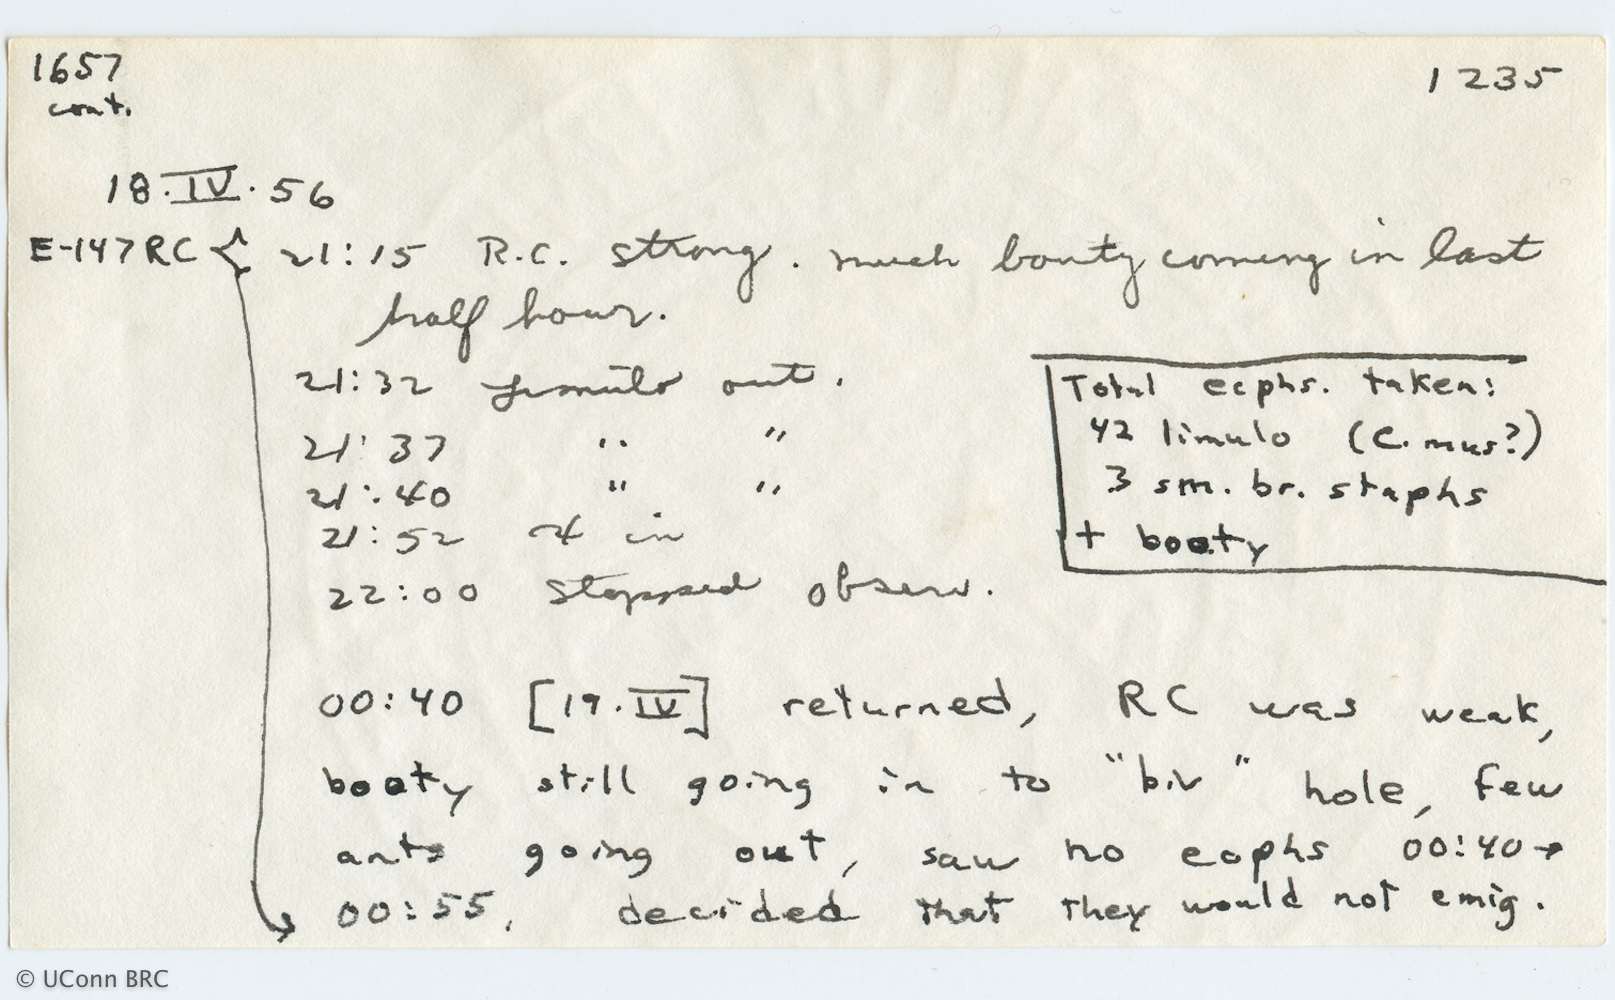 1657
cont.
1235
18.IV.56
E-147RC
21:15 R.C. strong. much bouty coming in last
half hour.
21:32 Limulo out.
21:37 " "
21:40 " "
21:52 in
22:00 stopped observ.
Total ecphs. taken:
42 limulo (C. mus?)
3 sm. br. staphs
+ booty
00:40 [19.IV] returned, RC was weak,
booty still going in to "biv" hole, few
ants going out, saw no ecphs 00:40→
00:55, decided that they would not emig.
© UConn BRC